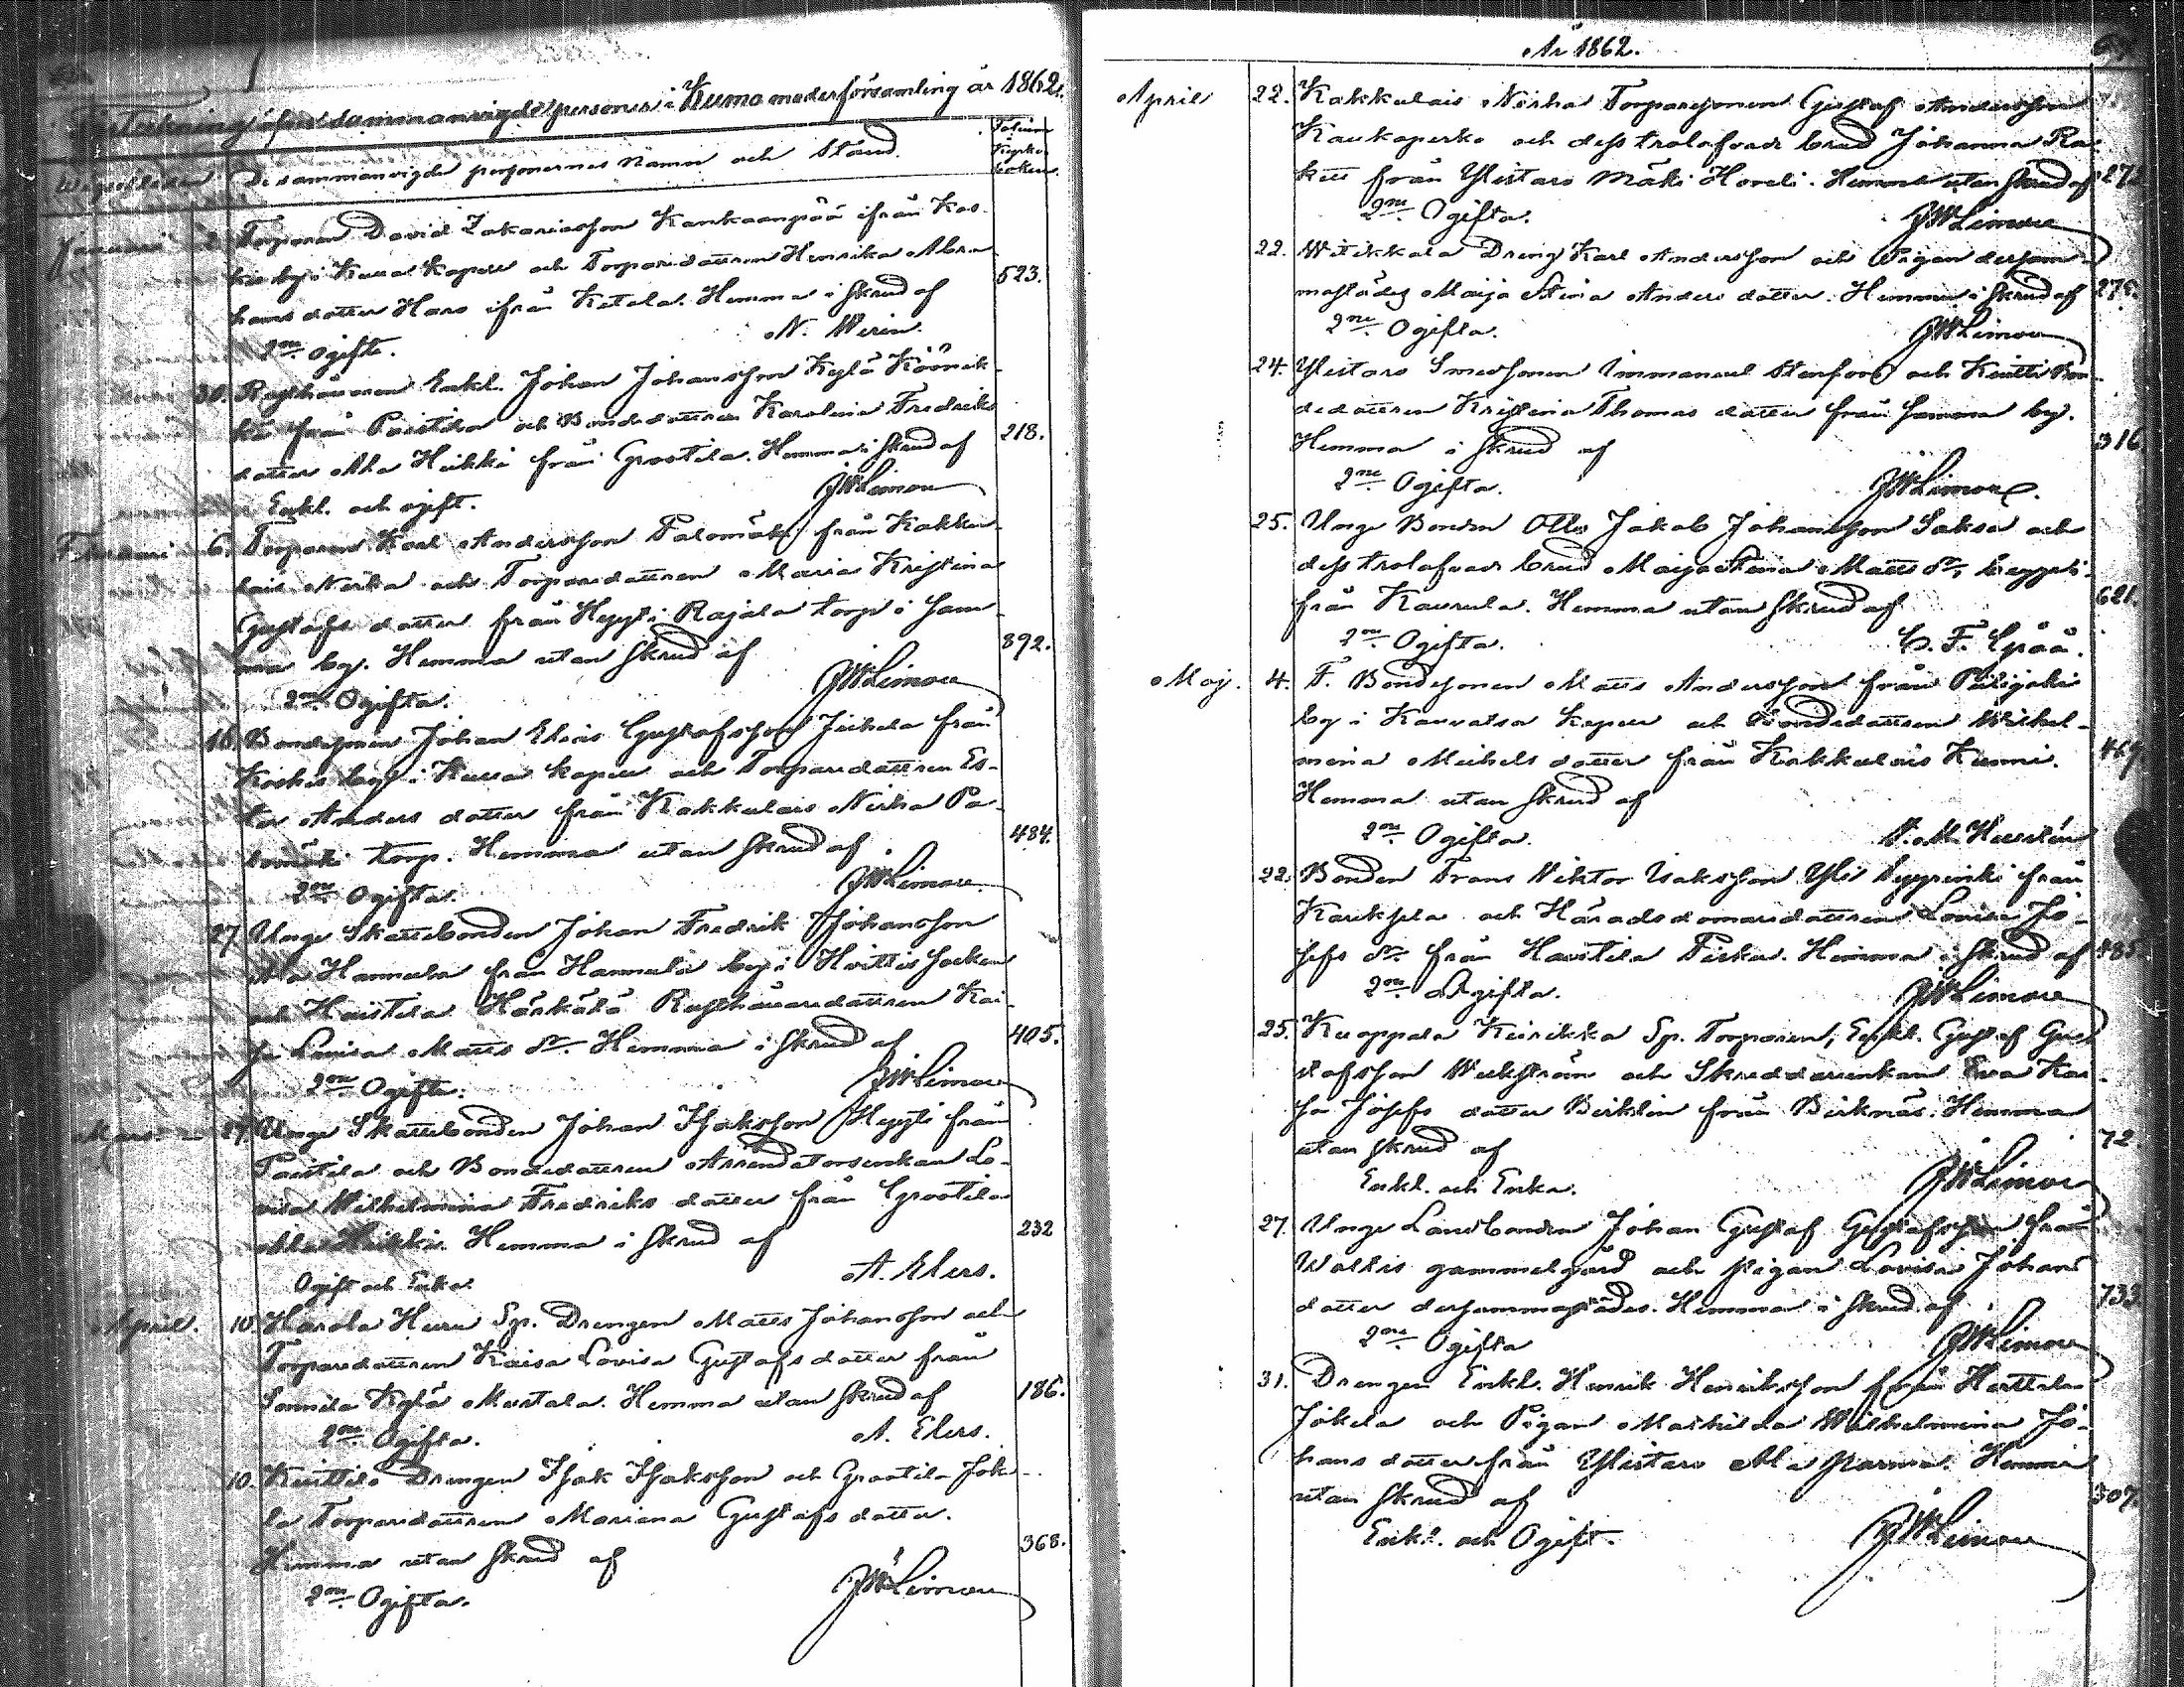 Förteckning öfver sammanvigde personer i Kumo moderförsamling år 1862.
De sammanvigde personernes namn och stånd.
Januari 2. Torparen David Zakariasson Kankaanpää ifrån Kos-
kis by i Kuua kapell och Torparedottren Henrika Abra
hams dotter Haro ifrån Ketola. Hemma i skrud af 523.
2ne ogifte. N. Werin.
30. Rusthållaren Enkl. Johan Johansson Kylä Köönik-
kä från Paistila och Bondedottren Karolina Fredriks
dotter Ala Heikki från Grootila. Hemma i skrud af 218.
Enkl. och ogift. JWLimon
Februari 6. Torparen Karl Andersson Palomäki från Kakku-
lais Nirha och Torparedottren Maria Kristina
Gustafs dotter från Hyyti Rajala torp i sam-
ma by. Hemma utan skrud af 892.
2ne Ogifta. JWLimon
16. Bondesonen Johan Elias Gustafsson Juhela från
Koskis by i Kuua kapell och Torparedottren Es-
ter Anders dotter från Kakkulais Nirha Pa-
lomäki torp. Hemma utan skrud af 484.
2ne Ogifta. JWLimon
27. Unge Skattebonden Johan Fredrik Johansson
Ala Hannula från Hannula by i Hvittis socken
och Haistila Härkälä Rusthållaredottren Kai-
sa Lovisa Matts dr. Hemma i skrud af 405.
2ne Ogifta. JWLimon
Mars 27. Unge Skattebonden Johan Isaksson Hyyti från
Paistila och Bondedottren Arrendatorsenkan Lo-
visa Wilhelmina Fredriks dotter från Grootila
Ala Heikki. Hemma i skrud af 232
Ogift och Enka. A. Elers.
April. 10. Harola Huru Sp. Drengen Matts Johansson och
Torparedottren Kaisa Lovisa Gustafs dotter från
Sonnila Kylä Mustala. Hemma utan skrud af 186.
2ne Ogifta. A. Elers.
10. Kuittila Drengen Isak Isaksson och Grootila Joke-
la Torparedottren Mariana Gustafs dotter.
Hemma utan skrud af 368.
2ne Ogifta. JWLimon
År 1862.
April 22. Kakkulais Nirha Torparesonen Gustaf Andersson
Kaukoperko och dess trolofvade brud Johanna Ra-
kell från Ylistaro Mäki Hondi. Hemma utan skrud af 27
2ne Ogifta. JWLimon
22. Witikkala Dreng Karl Andersson och Pigan dersam-
mastädes Maija Stina Anders dotter. Hemma i skrud af 276.
2ne Ogifta. JWLimon
24. Ylistaro Smedsonen Immanuel Stenfors och Kuitti Bon-
dedottren Kristina Thomas dotter från samma by.
Hemma i skrud af 316
2ne Ogifta. JWLimon
25. Unge Bonden Otto Jakob Johansson Saksa och
dess trolofvade brud Maija Stina Matts dr,
från Kaurula. Hemma utan skrud af 621.
2ne Ogifta. C. F. Spåå.
Maj. 4. F. Bondesonen Matts Andersson från Piilijoki
by i Kauvatsa kapell och Bondedottren Wilhel-
mina Mickels dotter från Kakkulais Kunni. 469
Hemma utan skrud af
2ne Ogifta. A. M. Hustén
22. Bonden Frans Wiktor Isaksson Yli Seppinki från
Kariksela och Häradsdomaredottren Lovisa Jo-
sefs dr. från Haistila Pirhu. Hemma i skrud af 385
2ne Ogifta. JWLimon
25. Kuoppala Keirikka Sp. Torparen, Enkl. Gustaf Gus-
tafsson Wickström och Skreddareenkan Eva Kai-
sa Josefs dotter Birklin från Birknäs. Hemma
utan skrud af 72
Enkl. och Enka. JWLimon
27. Unge Landbonden Johan Gustaf Gustafsson från
Wallis gammelgård och Pigan Lovisa Johans
dotter dersammastädes. Hemma i skrud af 733
2ne Ogifta JWLimon
31. Drengen Enkl. Henrik Henriksson från Herttola
Jokela och Pigan Mathilda Wilhelmina Jo-
hans dotter från Ylistaro Ala Parma. Hemma
utan skrud af 307.
Enkl. och Ogift. JWLimon